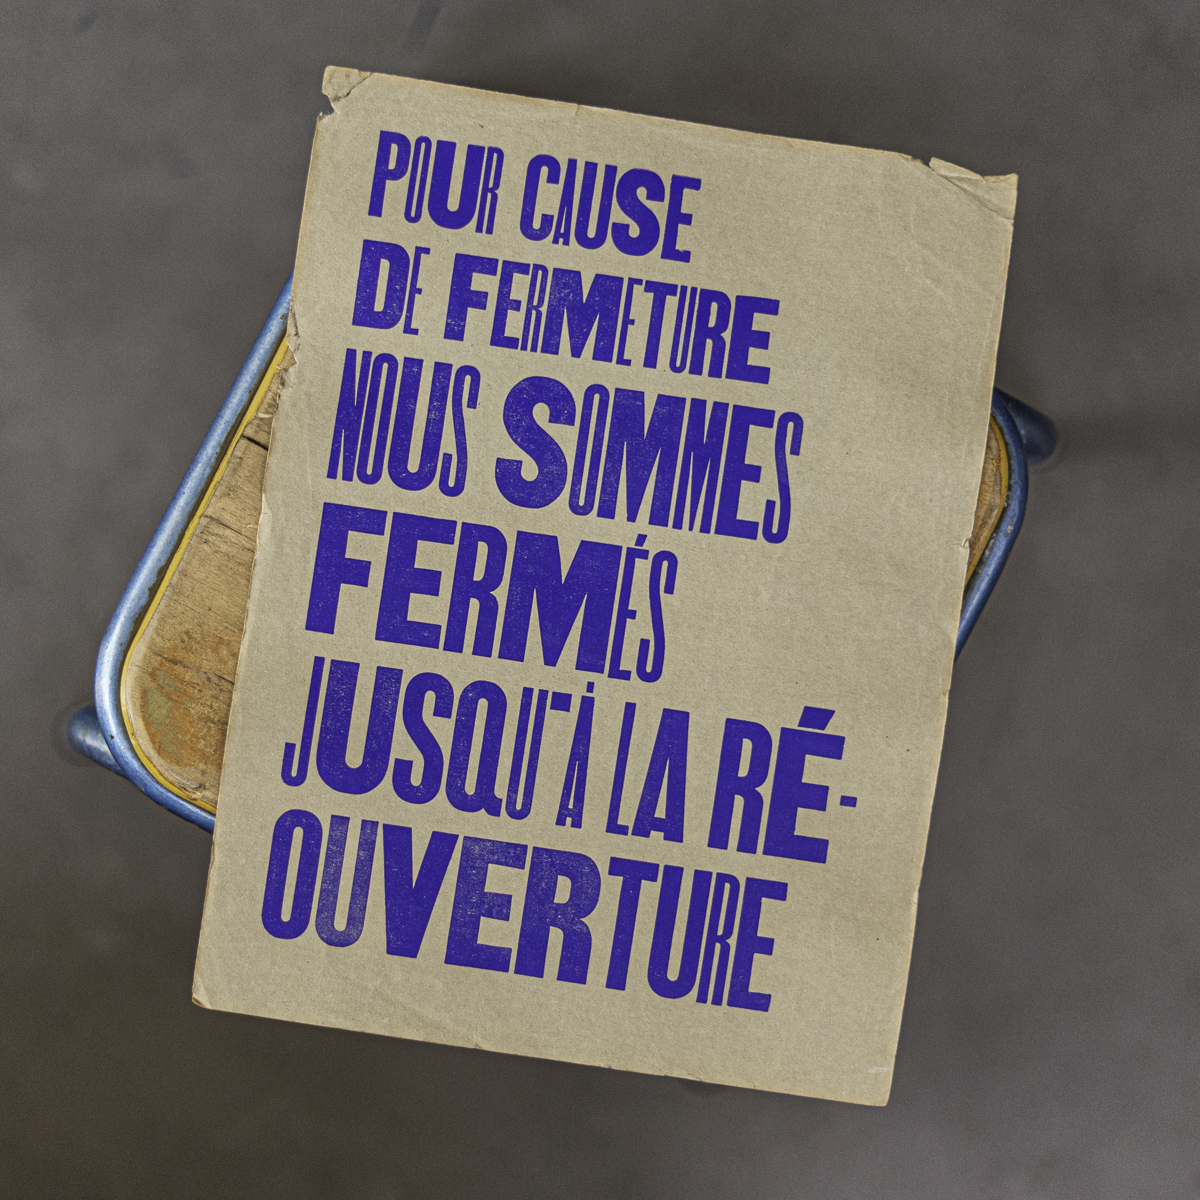 POUR CAUSE
DE FERMETURE
NOUS SOMMES
FERMÉS
JUSQU'À LA RÉ-
OUVERTURE